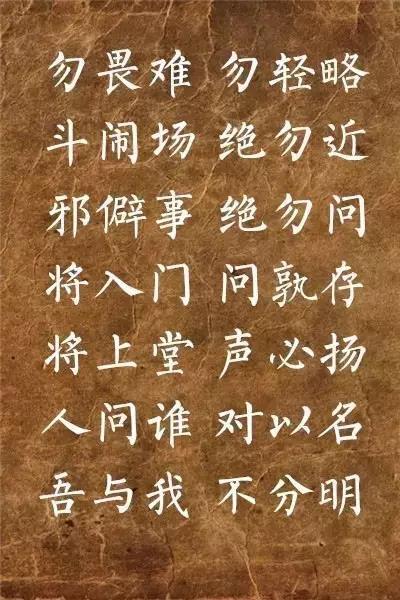 勿畏难 勿轻略
斗闹场 绝勿近
邪僻事 绝勿问
将入门 问孰存
将上堂 声必扬
人问谁 对以名
吾与我 不分明